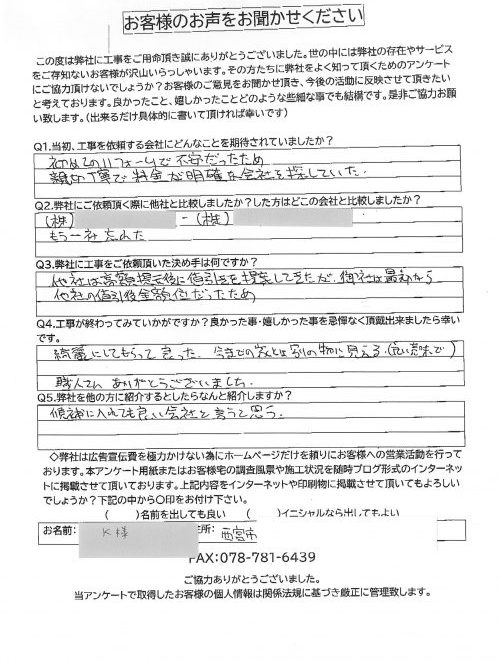 お客様のお声をお聞かせください
この度は弊社に工事をご用命頂き誠にありがとうございました。世の中には弊社の存在やサービス
をご存知ないお客様が沢山いらっしゃいます。その方たちに弊社をよく知って頂くためのアンケート
にご協力頂けないでしょうか？お客様のご意見をお聞かせ頂き、今後の活動に反映させて頂きたい
と考えております。良かったこと、嬉しかったことどのような些細な事でも結構です。是非ご協力お願
い致します。（出来るだけ具体的に書いて頂ければ幸いです）
Q1.当初、工事を依頼する会社にどんなことを期待されていましたか？
初めてのリフォームで不安だったため
親切丁寧で料金が明確な会社を探していた.
Q2.弊社にご依頼頂く際に他社と比較しましたか？した方はどこの会社と比較しましたか？
(株) - (株)
もう一社 忘れた
Q3.弊社に工事をご依頼頂いた決め手は何ですか？
他社は高額提示後に値引きを提案してきたが、御社は最初から
他社の値引後金額位だったため
Q4.工事が終わってみていかがですか？良かった事・嬉しかった事を忌憚なく頂戴出来ましたら幸い
です。
綺麗にしてもらって良かった. 今までの家とは別の物に見える.(良い意味で)
職人さん ありがとうございました.
Q5.弊社を他の方に紹介するとしたらなんと紹介しますか？
候補に入れても良い会社と言うと思う.
◇弊社は広告宣伝費を極力かけない為にホームページだけを頼りにお客様への営業活動を行って
おります。本アンケート用紙またはお客様宅の調査風景や施工状況を随時ブログ形式のインターネッ
トに掲載させて頂いております。上記内容をインターネットや印刷物に掲載させて頂いてもよろしい
でしょうか？下記の中から〇印をお付け下さい。
( )名前を出しても良い ( )イニシャルなら出してもよい
お名前: K様 住所: 西宮市
FAX:078-781-6439
ご協力ありがとうございました。
当アンケートで取得したお客様の個人情報は関係法規に基づき厳正に管理致します。